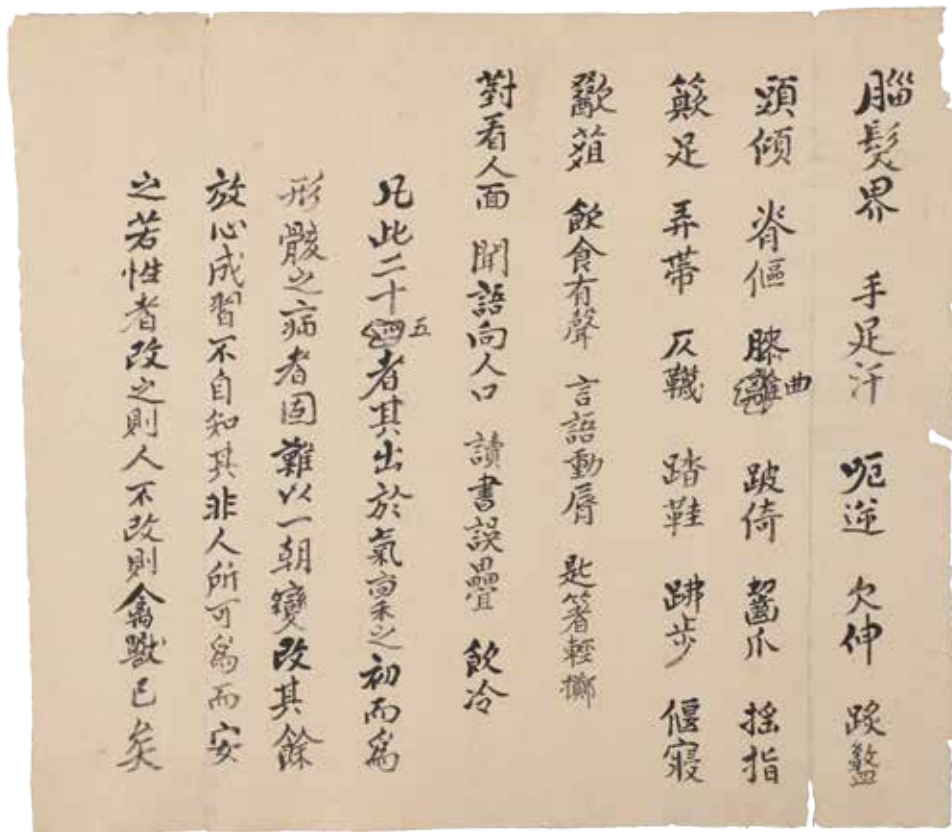 腦髮界 手足汗 呃逆 欠伸
頭傾 脊傴 膝曲 跛倚 齧爪 搖指
簸足 弄帶 仄韈 踏鞋 步 偃寢
歠菹 飮食有聲 言語動脣 匙箸輕擲
對看人面 聞語向人口 讀書誤疊 飮冷
凡此二十五者其出於氣稟之初而爲
形骸之病者固難以一朝變改其餘
放心成習不自知其非人所可爲而安
之若性者改之則人不改則禽獸已矣